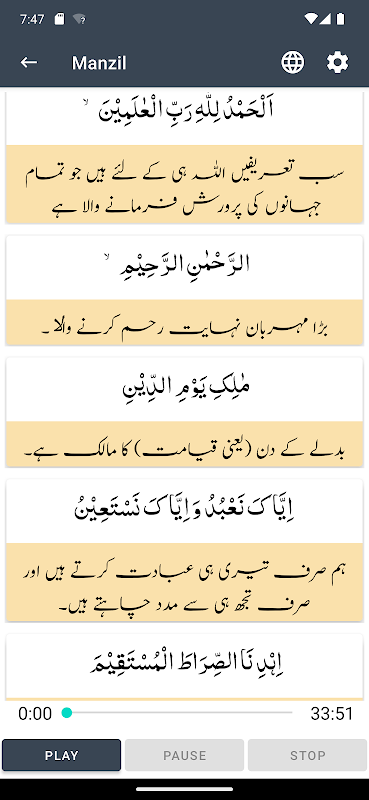 7:47
Manzil
اَلْحَمْدُ لِلّٰهِ رَبِّ الْعٰلَمِيْنَ ۙ
سب تعریفیں اللہ ہی کے لئے ہیں جو تمام
جہانوں کی پرورش فرمانے والا ہے
الرَّحْمٰنِ الرَّحِيْمِ ۙ
بڑا مہربان نہایت رحم کرنے والا ۔
مٰلِكِ يَوْمِ الدِّيْنِ
بدلے کے دن (یعنی قیامت) کا مالک ہے۔
اِيَّاكَ نَعْبُدُ وَاِيَّاكَ نَسْتَعِيْنُ
ہم صرف تیری ہی عبادت کرتے ہیں اور
صرف تجھ ہی سے مدد چاہتے ہیں۔
اِهْدِنَا الصِّرَاطَ الْمُسْتَقِيْمَ
0:00 33:51
PLAY PAUSE STOP